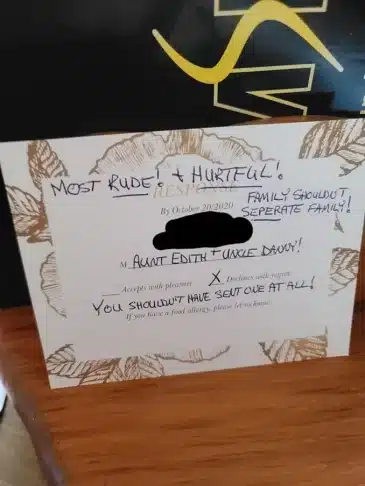 MOST RUDE! + HURTFUL!
RESPONSE
FAMILY SHOULDN'T
By October 20/2020
SEPERATE FAMILY!
M AUNT EDITH + UNCLE DANNY!
Accepts with pleasure X Declines with regret
YOU SHOULDN'T HAVE SENT ONE AT ALL!
If you have a food allergy, please let us know: